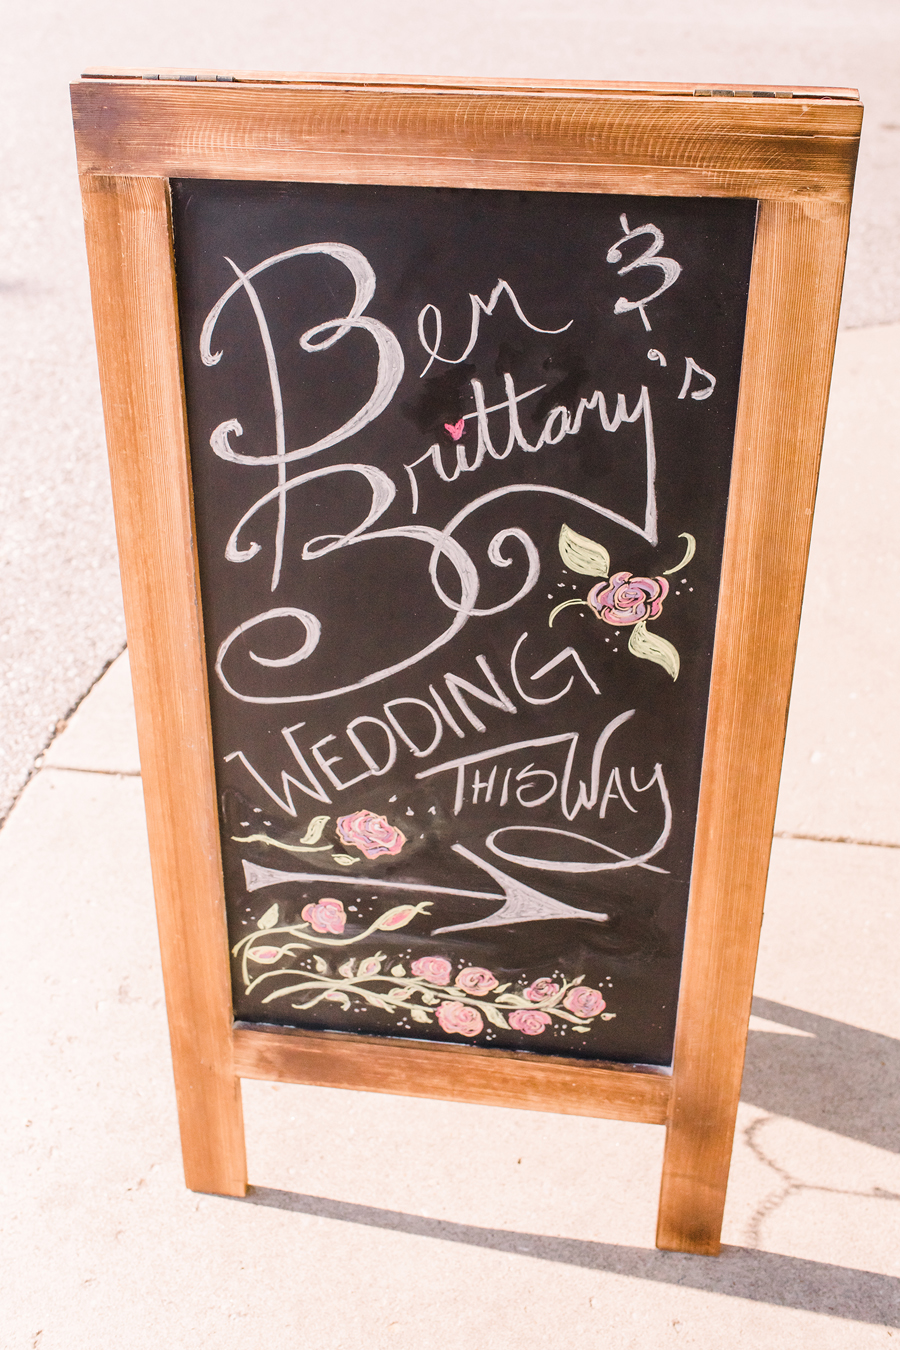 Ben &
Brittany's
WEDDING
THIS WAY